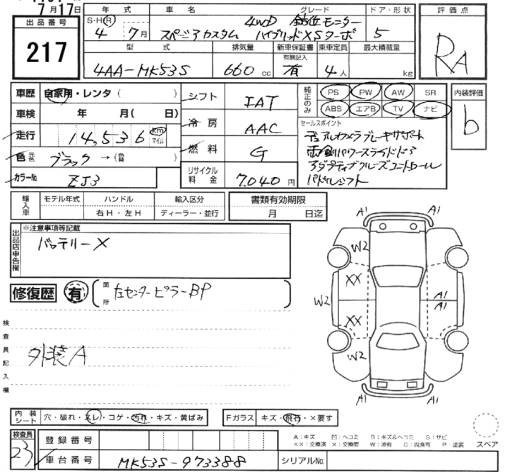 7月17日
出品番号
217
年式
車名
グレード
ドア・形状
評価点
S・H・R
4年7月
スペーシアカスタム
4WD 全方位モニター
ハイブリッドXSターボ
5
RA
型式
排気量
新車保証書
有無記入
乗車定員
最大積載量
4AA-MK53S
660cc
有
4人
kg
車歴
自家用・レンタ( )
シフト
IAT
純正のみ
PS
PW
AW
SR
ABS
エアB
TV
ナビ
内装評価
b
車検
年 月( 日)
冷房
AAC
セールスポイント
デュアルカメラブレーキサポート
両側パワースライドドア
アダプティブクルーズコントロール
パドルシフト
走行
14,536
km
マイル
燃料
G
色
ブラック→
カラー№
ZJ3
リサイクル料金
7,040円
輸入車
モデル年式
ハンドル
輸入区分
書類有効期限
右H・左H
ディーラー・並行
月 日迄
出品店申告欄
※注意事項等記載
バッテリーX
修復歴
有
箇所
左センターピラーBP
検査員記入欄
外装A
A1
A1
W2
XX
W2
XX
W2
A1
A1
A1
A1
内装シート
穴・破れ・スレ・コゲ・汚れ・キズ・黄ばみ
Fガラス
キズ・飛石・×要す
検査員
23
登録番号
車台番号
MK53S-973388
シリアルNo.
A:キズ
B:キズ&ヘコミ
S:サビ
XX:交換済
X:交換
W:波有
C:腐食有
P:塗装
スペア